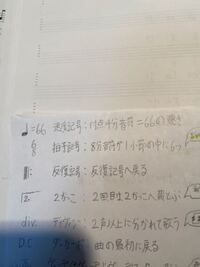 ♩.=66 速度記号:付点4分音符=66の速さ
6/8 拍子記号:8分音符が1小節の中に6つ
反復記号:反復記号へ戻る
2. 2かっこ:2回目は2かっこへ飛ぶ
div. ディヴィジ:2声以上に分かれて歌う
D.C ダ・カーポ 曲の最初に戻る